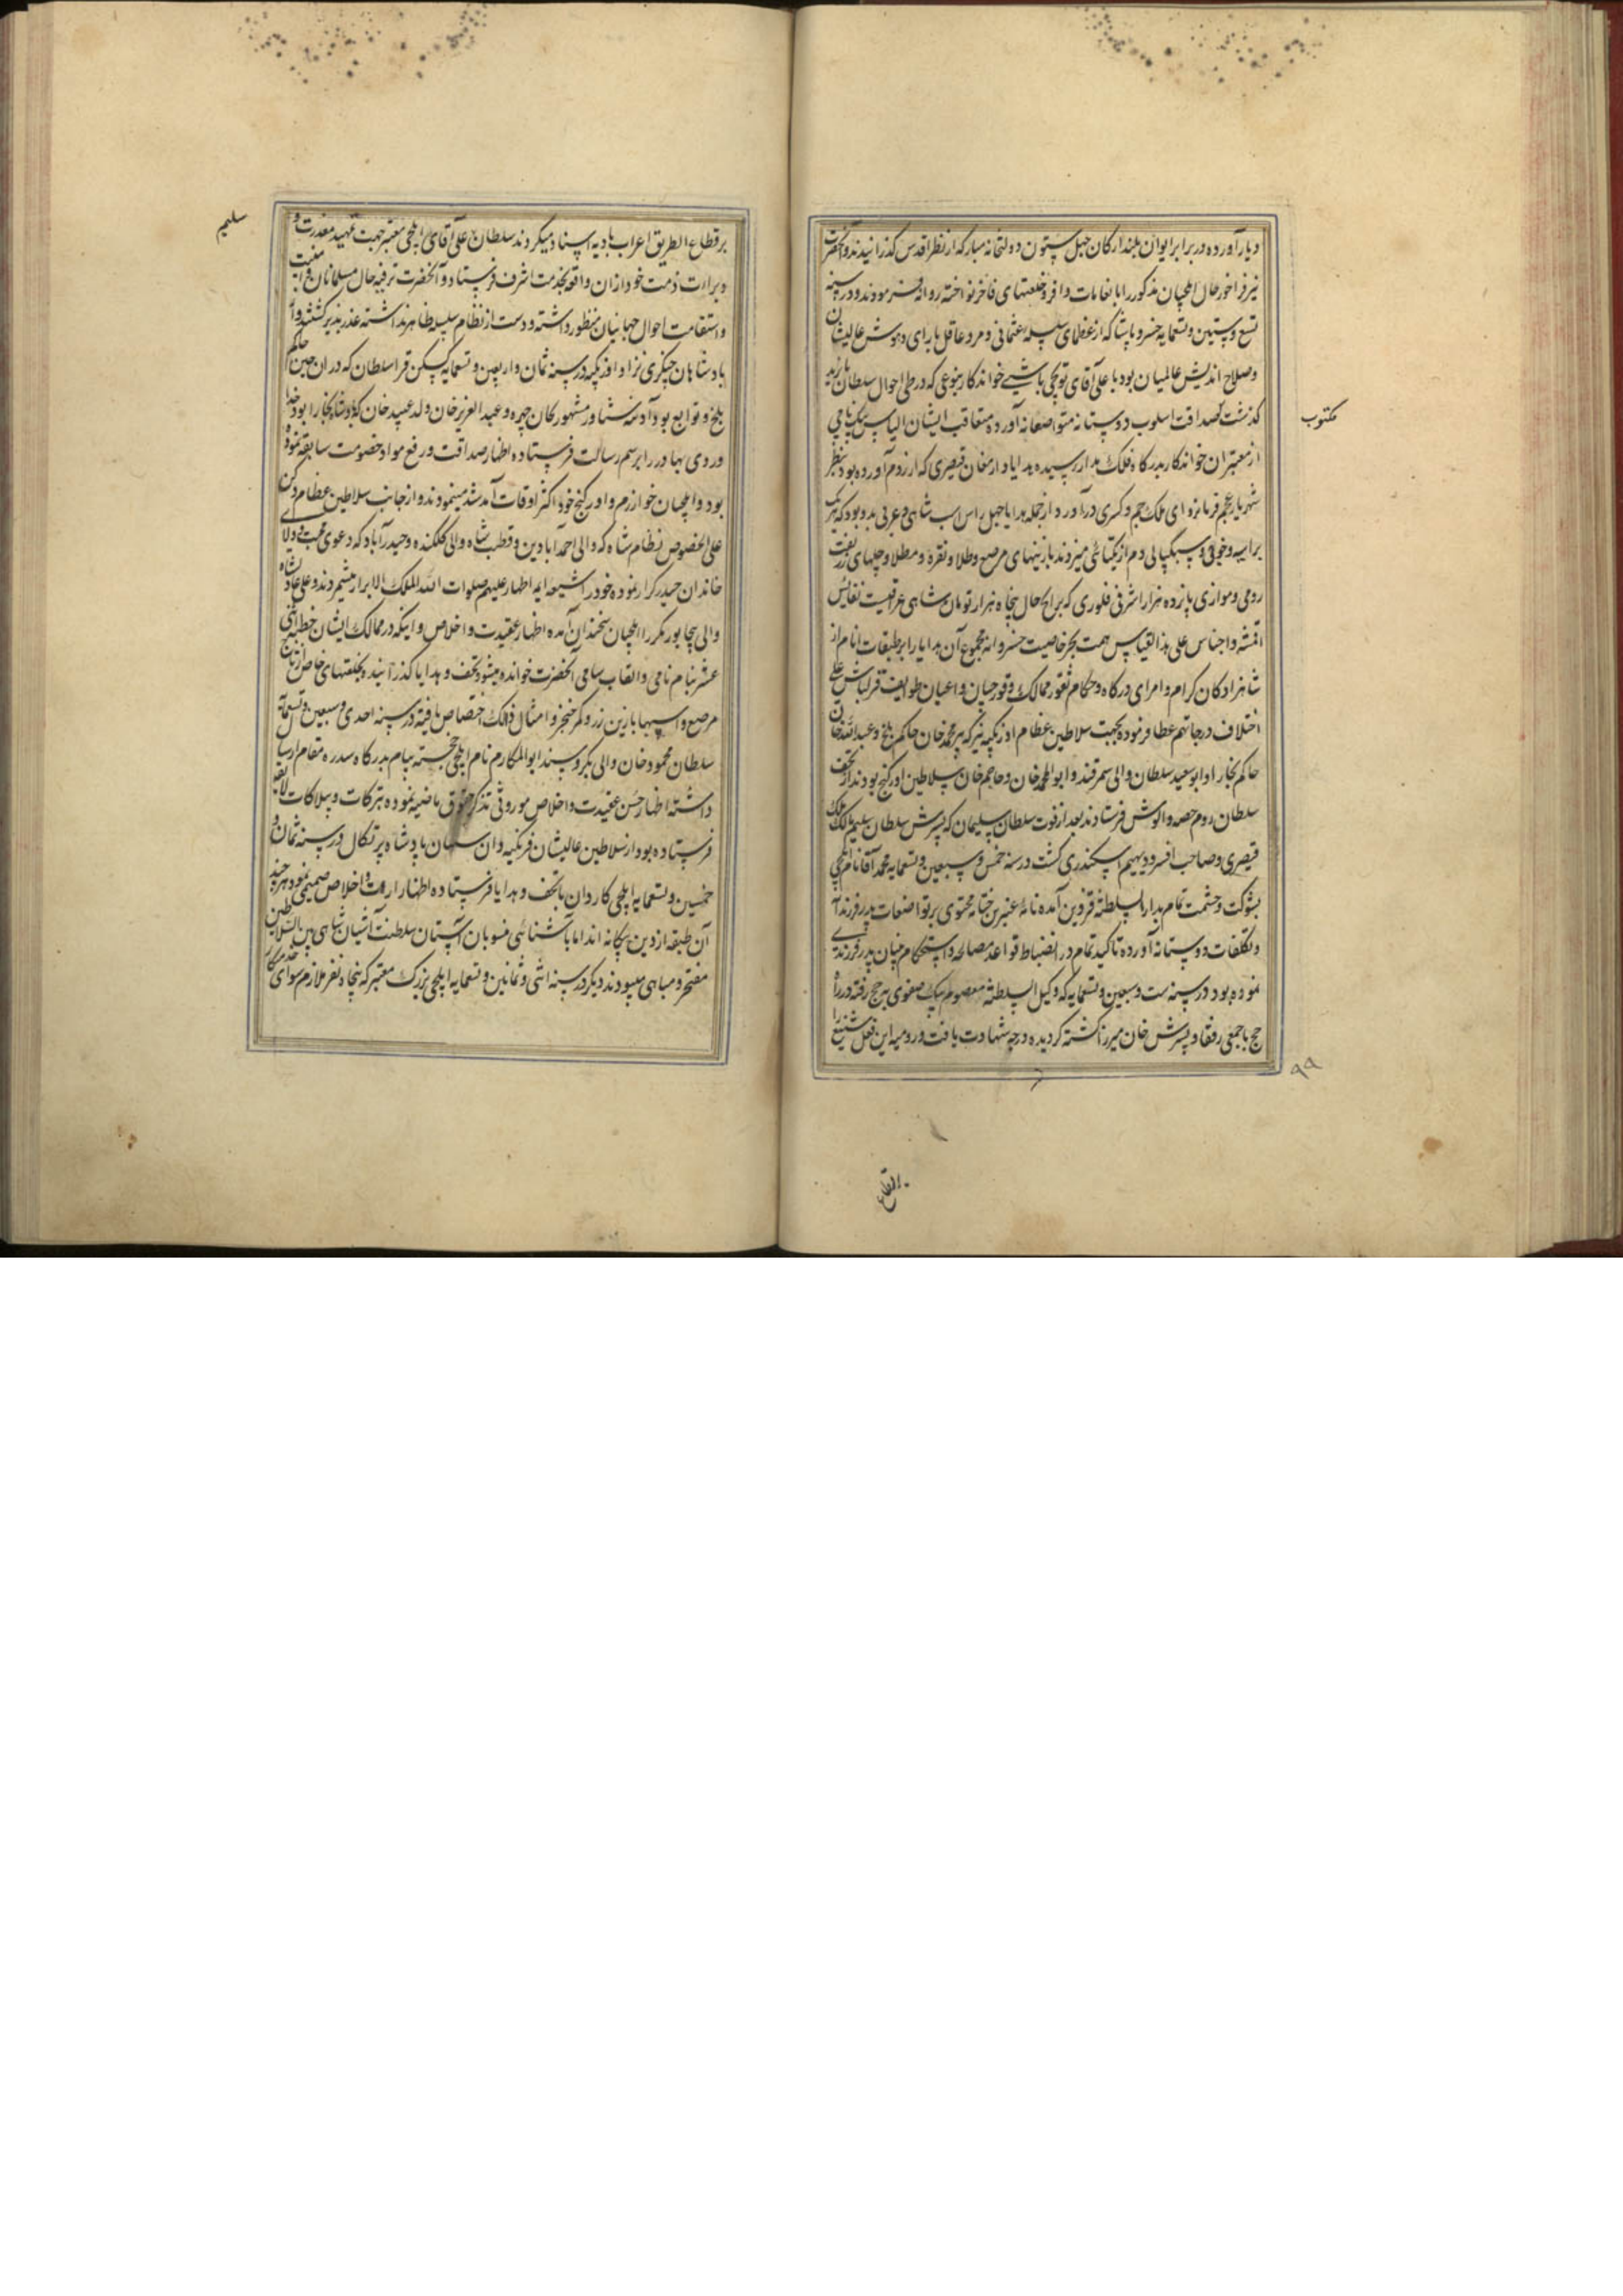 و بار آورده در برابر ایوان بلند ارکان چهل ستون دولتخانه مبارکه از نظر اقدس گذرانیدند و آنحضرت
نیز فراخور حال ایلچیان مذکور را بانعامات وافر و خلعتهای فاخر نواخته روانه فرمودند و در سنه
تسع و ستین و تسعمایه خسرو پاشا که از عظمای سلسله عثمانی و مرد عاقل با رای و هوش عالیشان
و صلاح اندیش عالمیان بود با علی آقای توپچی باشی خواندکار بنوعی که در طی احوال سلطان بایزید
مکتوب
گذشت صداقت اسلوب دوستانه متواضعانه آورده متعاقب ایشان الیاس بیک نامی
از معتبران خواندکار بدرگاه فلک مدار رسیده هدایا و ارمغان قیصری که از روم آورده بود بنظر
شهریار عجم فرمانروای ملک جم و کسری درآورد از جمله هدایا چهل راس اسب شامی و عربی بدو بود که هریک
برابیه و خوفی و سبکپایی دم از یکتائی میزدند با زینهای مرصع و طلا و نقره و مطلا و جلهای زربفت
رومی و موازی پانزده هزار اشرفی فلوری که برایج حال پنجاه هزار تومان شاهی عراقیست نفایس
اقمشه و اجناس علی هذا القیاس همت بحر خاصیت خسروانه مجموع آن هدایا را بر طبقات انام از
شاهزادگان کرام و امرای درگاه و حکام ثغور ممالک و قورچیان و اعیان طوایف قزلباش علی
اختلاف درجاتهم عطا فرموده بجهت سلاطین عظام اوزبکیه نیز که پیر محمد خان حاکم بلخ و عبدالله خان
حاکم بخارا و ابوسعید سلطان والی سمرقند و ابوالمحمد خان و حاجم خان سلاطین اورکنج بودند از تحف
سلطان روم حصه و الوش فرستادند بعد از فوت سلطان سلیمان که پسرش سلطان سلیم مالک ملک
قیصری و صاحب افسر و دیهیم اسکندری گشت در سنه خمس و سبعین و تسعمایه محمد آقا نام ایلچی
بشوکت و حشمت تمام بدار السلطنه قزوین آمده نامهٔ عنبرین ختامه محتوی بر تواضعات پدر فرزندانه
و تکلفات دوستانه آورده تاکید تمام در انضباط قواعد مصالحه و استحکام میان پدر فرزندی
نموده بود در سنه ست و سبعین و تسعمایه که وکیل السلطنه معصوم بیک صفوی به حج رفته در راه
حج با جمعی رفقا و پسرش خان میرزا کشته گردیده درجه شهادت یافت و رومیه این فعل شنیع را
۹۹
بر قطاع الطریق اعراب بادیه اسناد میکردند سلطان علی آقای ایلچی معتبر جهت تمهید معذرت و
سلیم
و براءت ذمت خود از آن واقعه بخدمت اشرف فرستاد و آنحضرت ترفیه حال مسلمانان و امنیت
و استقامت احوال جهانیان منظور داشته و دست از نظام سلسله ظاهر نداشته عذر پذیر گشتند و از
پادشاهان چنگیزی نژاد اوزبکیه در سنه ثمان و اربعین و تسعمایه کیسکن قرا سلطان که در آن حین حاکم
بلخ و توابع بود آدینه شماور مشهور بخان چهره و عبد العزیز خان ولد عبید خان که پادشاه بخارا بود خدا
وردی بهادر را برسم رسالت فرستاده اظهار صداقت و رفع مواد خصومت سابقه نموده
بود و ایلچیان خوارزم و اورکنج خود اکثر اوقات آمد شد مینمودند و از جانب سلاطین عظام دکن
علی الخصوص نظام شاه که والی احمد آباد بن و قطب شاه والی کلکنده و حیدرآباد که دعوی محبت و ولای
خاندان حیدر کرار نموده خود را شیعه ایمه اطهار علیهم صلوات الله الملک الابرار میشمردند و علی عادلشاه
والی بیجاپور مکرر ایلچیان سخندان آمده اظهار عقیدت و اخلاص و اینکه در ممالک ایشان خطبه اثنی
عشر بنام نامی و القاب سامی آنحضرت خوانده میشود و تحف و هدایا گذرانیده و بخلعتهای خاص از تاج
مرصع و اسبها با زین زر و کمر خنجر و امثال ذالک اختصاص یافته در سنه احدی و سبعین و تسعمایه
سلطان محمود خان والی بکر و سند ابوالمکارم نام ایلچی خجسته پیام بدرگاه سدره مقام ارسال
داشته اظهار حسن عقیدت و اخلاص موروثی تذکر حقوق ماضیه نموده تبرکات و بیلاکات لایقه
فرستاده بود از سلاطین عالیشان فرنگیه دان سستیان پادشاه پرتکال در سنه ثمان و
خمسین و تسعمایه ایلچی کاردان با تحف و هدایا فرستاده اظهار ارادت و اخلاص صمیمی نمود هر چند
آن طبقه از دین بیگانه اند اما باشنائی منسوبان آستان سلطنت آشیان شاهی بین السلاطین
مفتخر و مباهی میبودند دیگر در سنه اثنی و ثمانین و تسعمایه ایلچی بزرگ معتبر که پنجاه نفر ملازم سوای خدمتکار